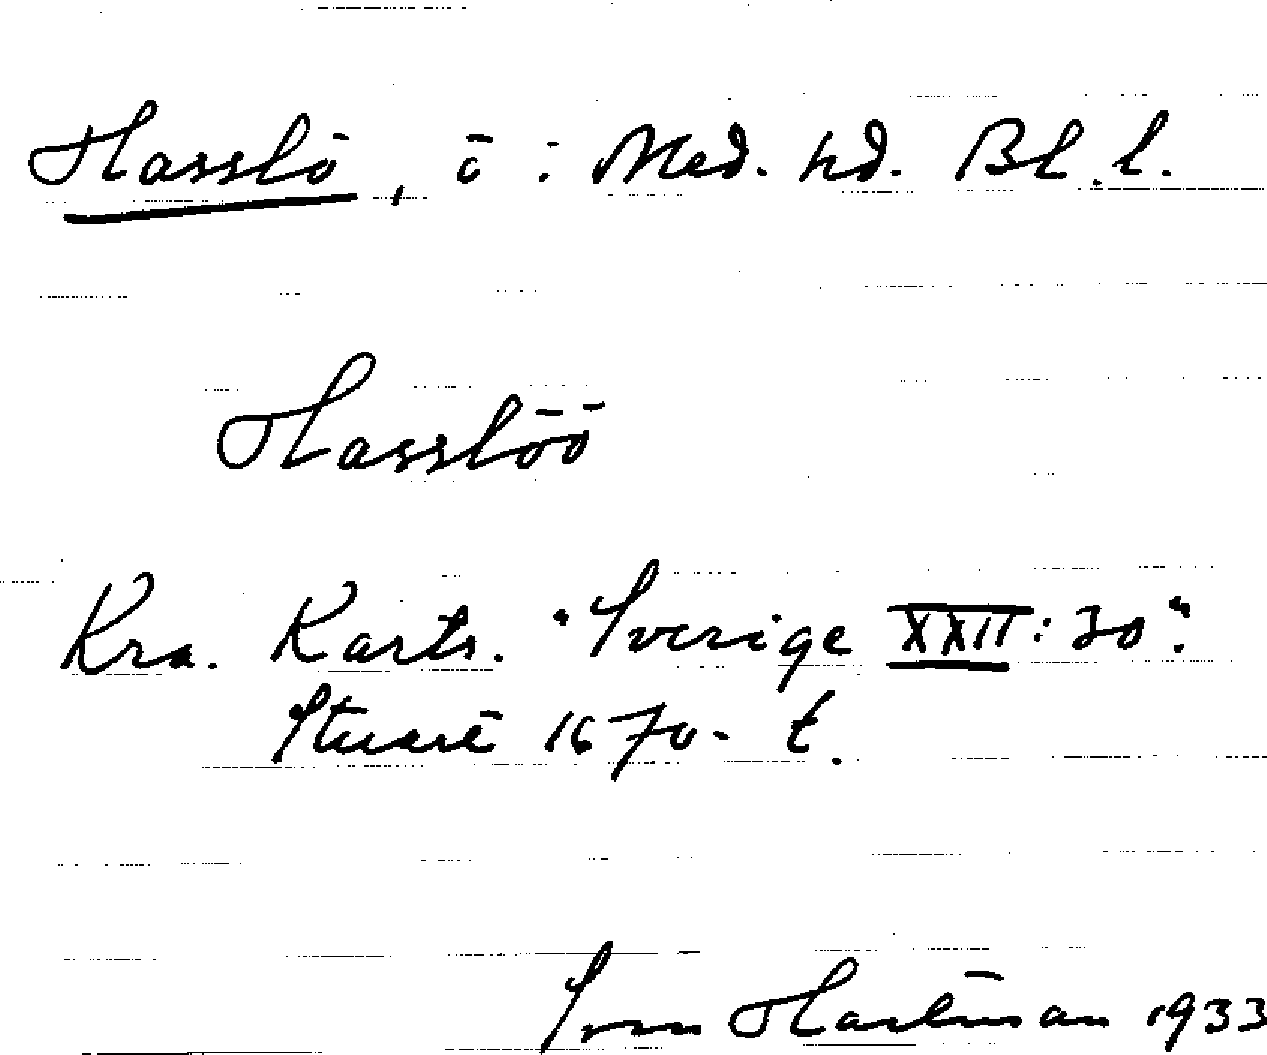 Hasslö, ö : Med. hd. Bl. l.
Hasslöö
Kra. Karts. "Sverige XXII: 30".
Stuart 1670-t.
Sven Hartman 1933